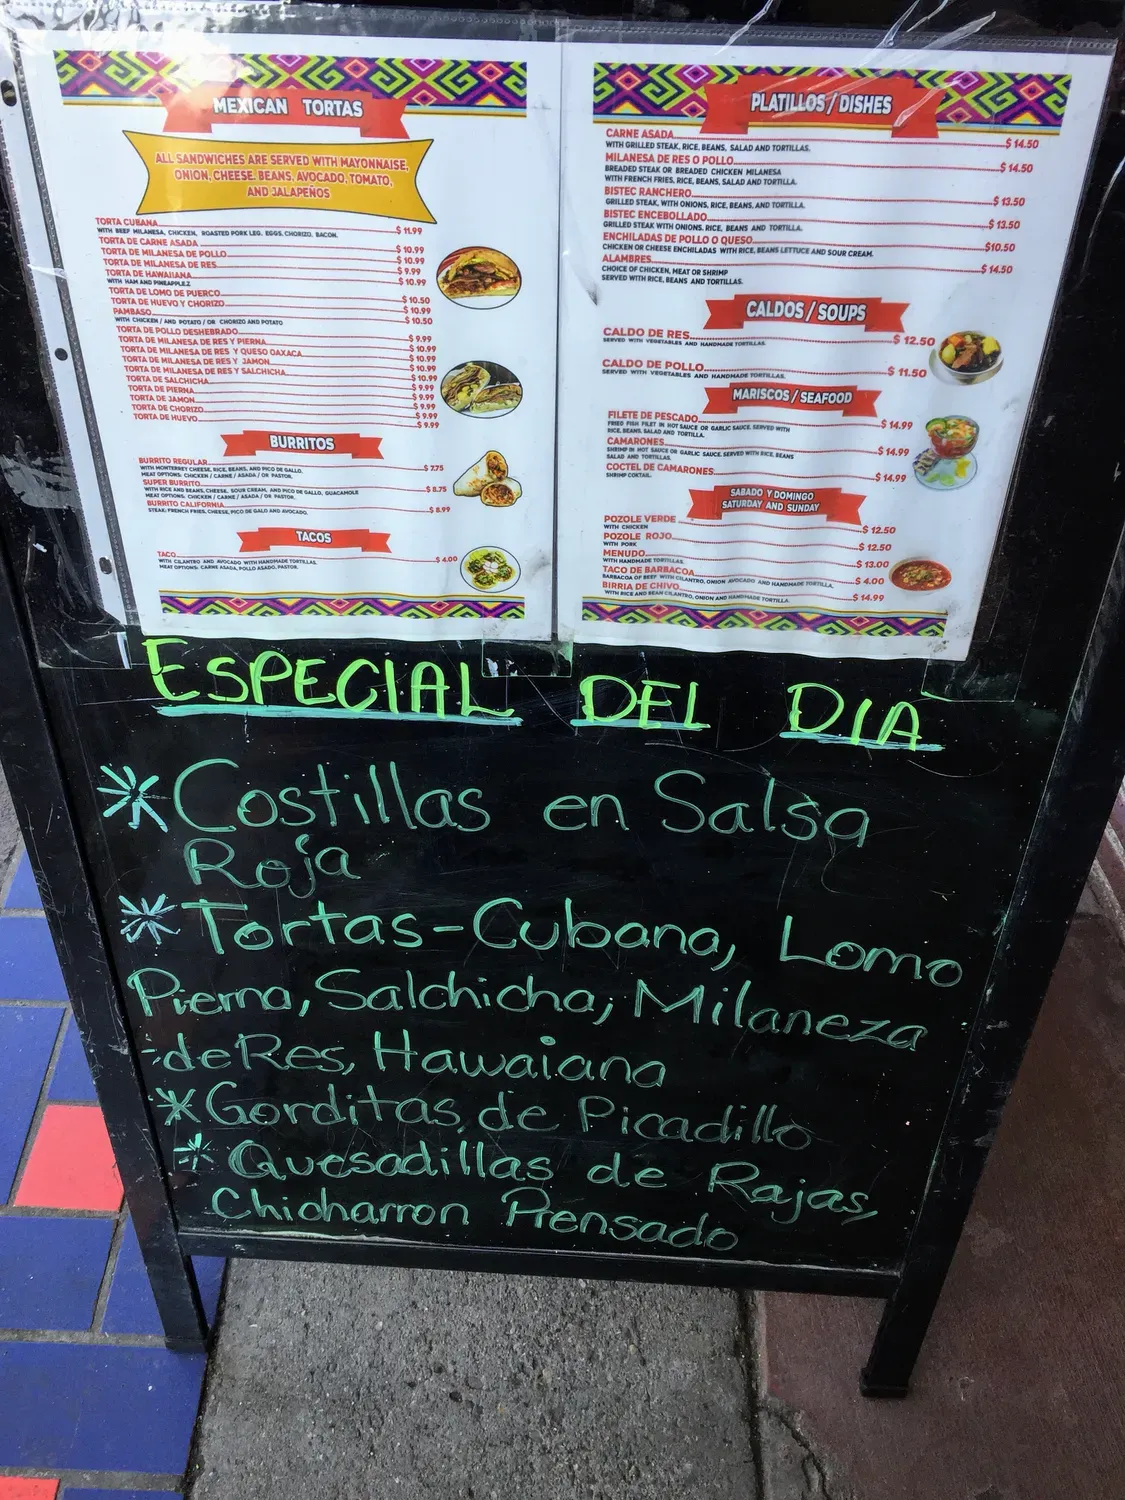 MEXICAN TORTAS
ALL SANDWICHES ARE SERVED WITH MAYONNAISE,
ONION, CHEESE. BEANS, AVOCADO, TOMATO,
AND JALAPEÑOS
TORTA CUBANA $ 11.99
WITH BEEF MILANESA, CHICKEN, ROASTED PORK LEG. EGGS, CHORIZO. BACON.
TORTA DE CARNE ASADA $ 10.99
TORTA DE MILANESA DE POLLO $ 10.99
TORTA DE MILANESA DE RES $ 9.99
TORTA DE HAWAIIANA $ 10.99
WITH HAM AND PINEAPPLE.Z
TORTA DE LOMO DE PUERCO $ 10.50
TORTA DE HUEVO Y CHORIZO $ 10.99
PAMBASO $ 10.50
WITH CHICKEN / AND POTATO / OR CHORIZO AND POTATO
TORTA DE POLLO DESHEBRADO $ 9.99
TORTA DE MILANESA DE RES Y PIERNA $ 10.99
TORTA DE MILANESA DE RES Y QUESO OAXACA $ 10.99
TORTA DE MILANESA DE RES Y JAMON $ 10.99
TORTA DE MILANESA DE RES Y SALCHICHA $ 10.99
TORTA DE SALCHICHA $ 9.99
TORTA DE PIERNA $ 9.99
TORTA DE JAMON $ 9.99
TORTA DE CHORIZO $ 9.99
TORTA DE HUEVO $ 9.99
BURRITOS
BURRITO REGULAR $ 7.75
WITH MONTERREY CHEESE, RICE, BEANS, AND PICO DE GALLO.
MEAT OPTIONS: CHICKEN / CARNE / ASADA / OR PASTOR.
SUPER BURRITO $ 8.75
WITH RICE AND BEANS, CHEESE, SOUR CREAM, AND PICO DE GALLO, GUACAMOLE
MEAT OPTIONS: CHICKEN / CARNE / ASADA / OR PASTOR.
BURRITO CALIFORNIA $ 8.99
STEAK, FRENCH FRIES, CHEESE, PICO DE GALO AND AVOCADO.
TACOS
TACO $ 4.00
WITH CILANTRO AND AVOCADO WITH HANDMADE TORTILLAS.
MEAT OPTIONS: CARNE ASADA, POLLO ASADO, PASTOR.
PLATILLOS / DISHES
CARNE ASADA $ 14.50
WITH GRILLED STEAK, RICE, BEANS, SALAD AND TORTILLAS.
MILANESA DE RES O POLLO $ 14.50
BREADED STEAK OR BREADED CHICKEN MILANESA
WITH FRENCH FRIES, RICE, BEANS, SALAD AND TORTILLA.
BISTEC RANCHERO $ 13.50
GRILLED STEAK, WITH ONIONS, RICE, BEANS, AND TORTILLA.
BISTEC ENCEBOLLADO $ 13.50
GRILLED STEAK WITH ONIONS. RICE, BEANS AND TORTILLA.
ENCHILADAS DE POLLO O QUESO $10.50
CHICKEN OR CHEESE ENCHILADAS WITH RICE, BEANS LETTUCE AND SOUR CREAM.
ALAMBRES $ 14.50
CHOICE OF CHICKEN, MEAT OR SHRIMP
SERVED WITH RICE, BEANS AND TORTILLAS.
CALDOS / SOUPS
CALDO DE RES $ 12.50
SERVED WITH VEGETABLES AND HANDMADE TORTILLAS.
CALDO DE POLLO $ 11.50
SERVED WITH VEGETABLES AND HANDMADE TORTILLAS.
MARISCOS / SEAFOOD
FILETE DE PESCADO $ 14.99
FRIED FISH FILET IN HOT SAUCE OR GARLIC SAUCE. SERVED WITH
RICE, BEANS. SALAD AND TORTILLA.
CAMARONES $ 14.99
SHRIMP IN HOT SAUCE OR GARLIC SAUCE. SERVED WITH RICE, BEANS
SALAD AND TORTILLAS.
COCTEL DE CAMARONES $ 14.99
SHRIMP COKTAIL.
SABADO Y DOMINGO
SATURDAY AND SUNDAY
POZOLE VERDE $ 12.50
WITH CHICKEN
POZOLE ROJO $ 12.50
WITH PORK
MENUDO $ 13.00
WITH HANDMADE TORTILLAS.
TACO DE BARBACOA $ 4.00
BARBACOA OF BEEF WITH CILANTRO, ONION AVOCADO AND HANDMADE TORTILLA.
BIRRIA DE CHIVO $ 14.99
WITH RICE AND BEAN CILANTRO, ONION AND HANDMADE TORTILLA.
ESPECIAL DEL DIA
* Costillas en Salsa
Roja
* Tortas-Cubana, Lomo
Pierna, Salchicha, Milaneza
-de Res, Hawaiana
* Gorditas de Picadillo
* Quesadillas de Rajas,
Chicharron Prensado